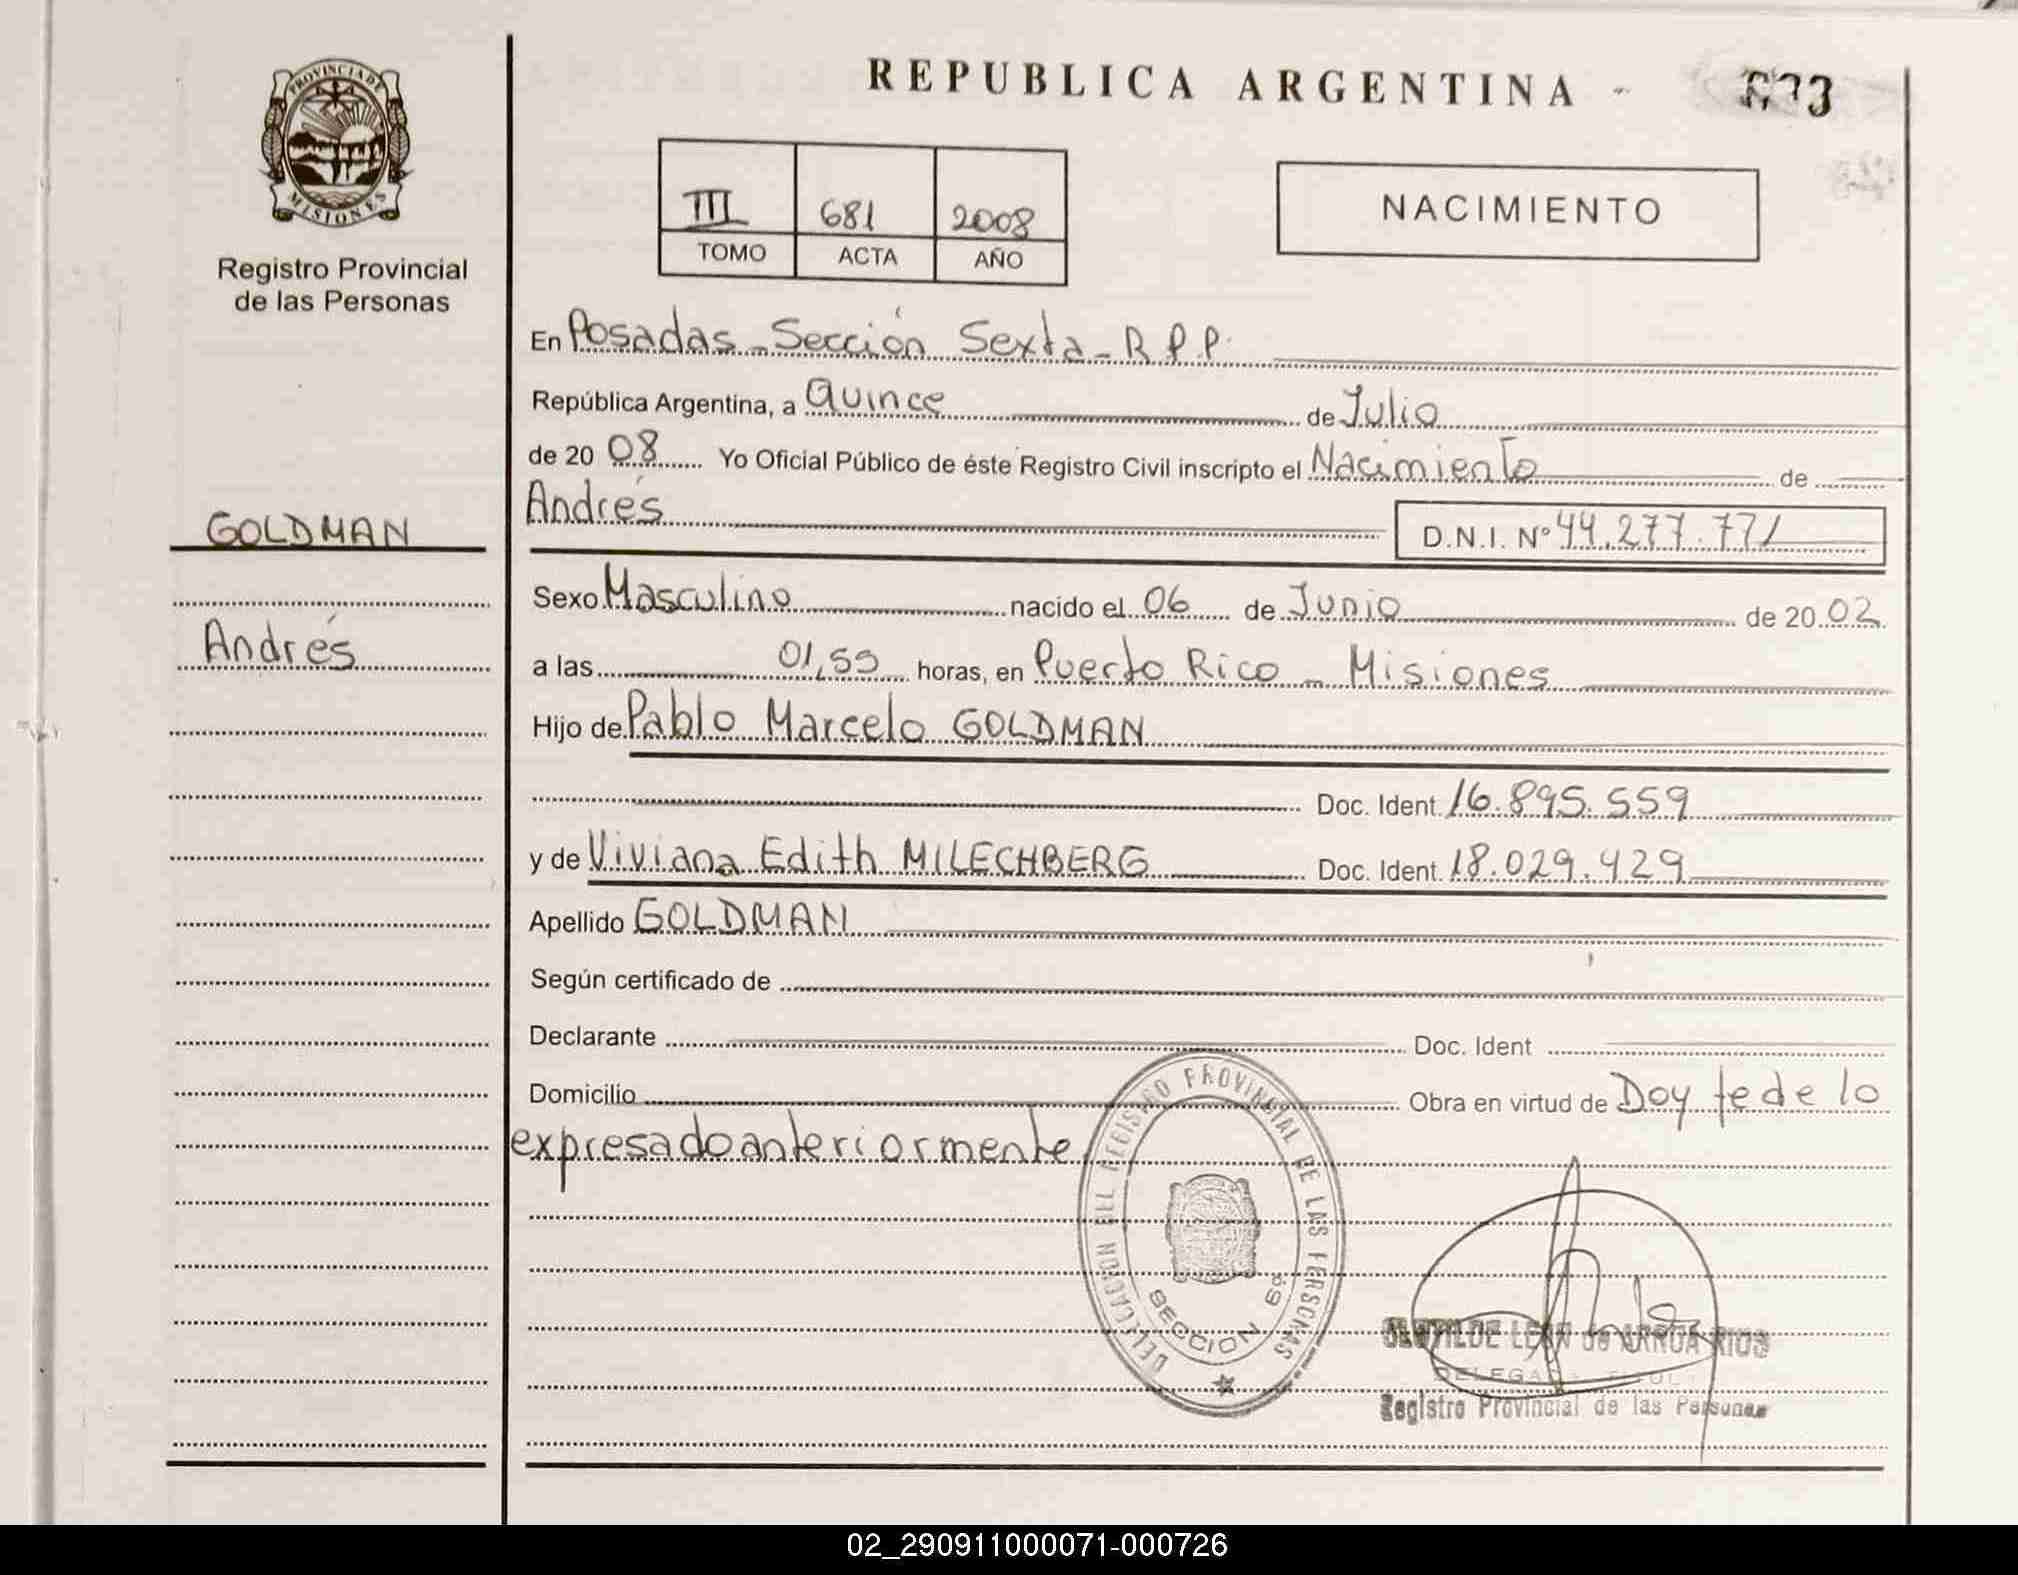 PROVINCIA DE
MISIONES
Registro Provincial
de las Personas
GOLDMAN
Andrés
REPUBLICA ARGENTINA
III 681 2008
TOMO ACTA AÑO
NACIMIENTO
En Posadas - Sección Sexta - R P.P.
República Argentina, a Quince de Julio
de 20 08 Yo Oficial Público de éste Registro Civil inscripto el Nacimiento de
Andrés D.N.I. Nº 44.277.771
Sexo Masculino nacido el 06 de Junio de 20 02
a las 01,55 horas, en Puerto Rico - Misiones
Hijo de Pablo Marcelo GOLDMAN
Doc. Ident. 16.895.559
y de Viviana Edith MILECHBERG Doc. Ident. 18.029.429
Apellido GOLDMAN
Según certificado de
Declarante Doc. Ident
Domicilio Obra en virtud de Doy fe de lo
expresado anteriormente
DELEGACION DEL REGISTRO PROVINCIAL DE LAS PERSONAS
SECCION 6ª
CLOTILDE LEON de ARRUA RIOS
Registro Provincial de las Personas
02_290911000071-000726